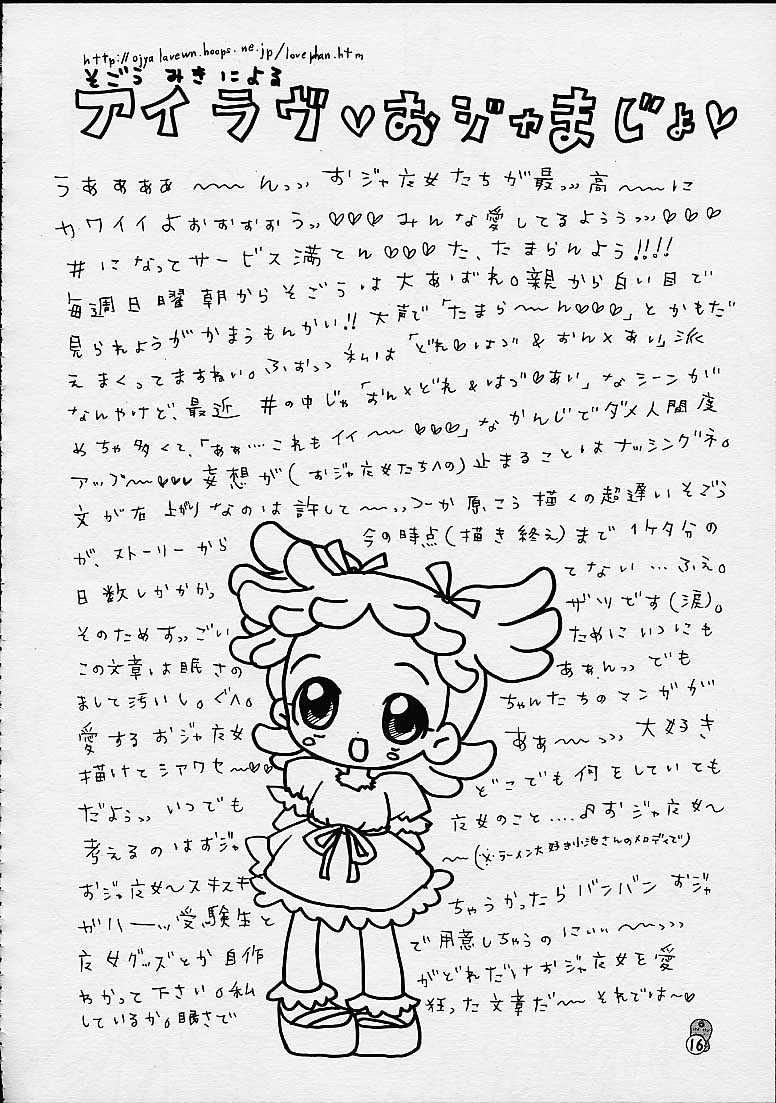 http://ojyalavewn.hoops.ne.jp/lovephan.htm
そごう みきによる
アイラヴ♡おジャまじょ♡
うあぁぁぁ〜〜んっっ おジャ魔女たちが最っっ高〜〜に
カワイイよおぉぉぉうっ♡♡♡みんな愛してるようぅっっ♡♡♡
#になってサービス満てん♡♡♡た、たまらんよう!!!!
毎週日曜朝からそごうは大あばれ。親から白い目で
見られようがかまうもんかい!!大声で「たまら〜〜ん♡♡♡」とかもだ
えまくってますねい。ふぉっっ 私は「どれ♡はづ&おん×あい」派
なんやけど、最近 #の中じゃ「おん×どれ&はづ♡あい」なシーンが
めちゃ多くて、「あぁ…これもイイ〜〜♡♡♡」なかんじでダメ人間度
アップ〜〜♡♡♡妄想が(おジャ魔女たちへの)止まることはナッシングネ。
文が右上がりなのは許して〜っっ つーか原こう描くの超遅いそごう
が、ストーリーから 今の時点(描き終え)まで1ケタ分の
日数しかかかっ てない…ふぇ。
そのためすっごい ザツです(涙)。
この文章は眠さの ためにいつにも
まして汚いし。ぐへ。 あぁんっっでも
愛するおジャ魔女 ちゃんたちのマンガが
描けてシアワセ〜♡♡ あぁ〜〜っっ大好き
だようっっ いつでも どこでも何をしていても
考えるのはおジャ 魔女のこと……♪おジャ魔女〜
おジャ魔女〜スキスキ 〜〜(※ラーメン大好き小池さんのメロディで)
がハーッッ受験生と ちゃうかったらバンバン おジャ
魔女グッズとか自作 で用意しちゃうのにぃぃ〜〜っっっ
わかって下さい。私 がどれだけおジャ魔女を愛
しているか。眠さで 狂った文章だ〜〜それでは〜♡
16